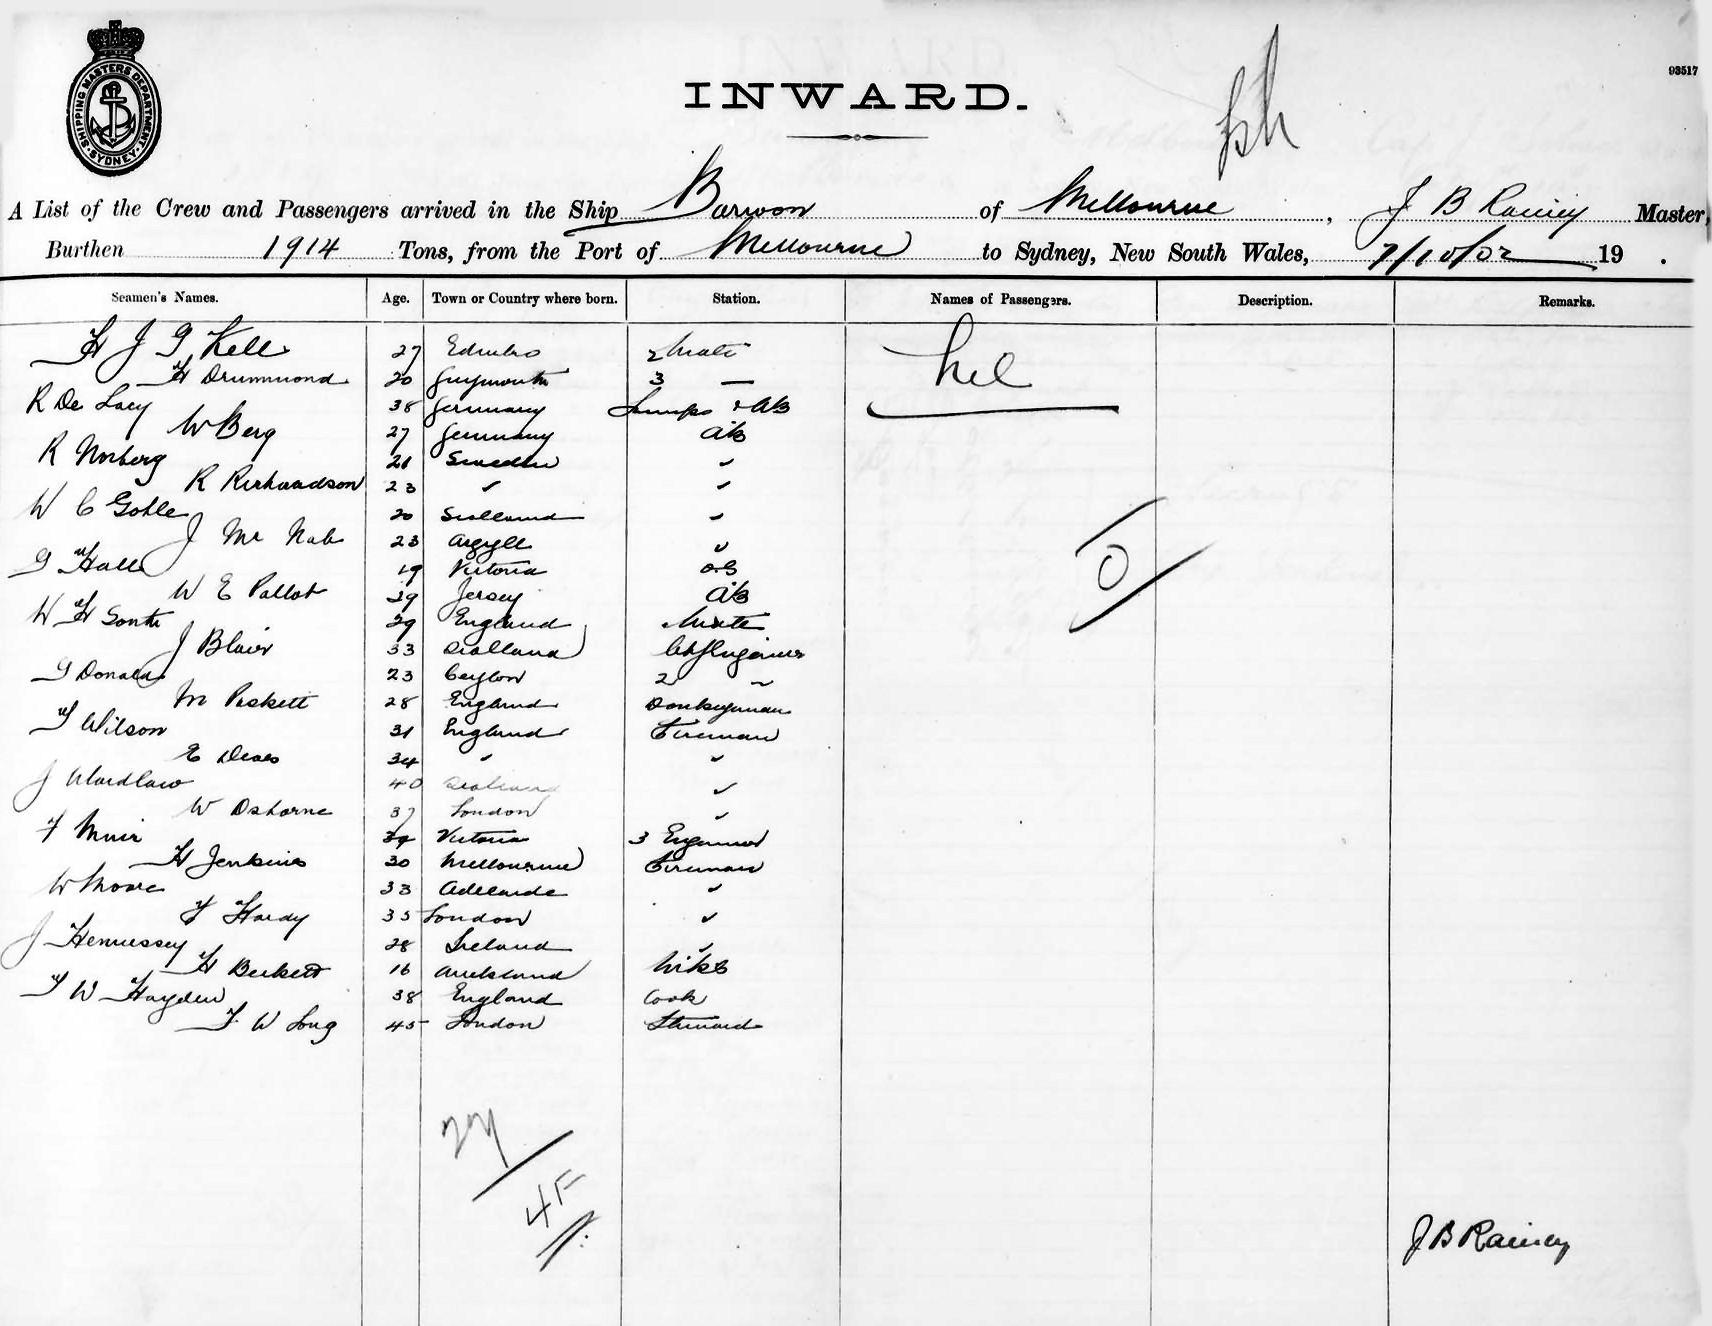 SHIPPING MASTERS DEPARTMENT. SYDNEY.
93517
INWARD.
A List of the Crew and Passengers arrived in the Ship Barwon of Melbourne, J B Rainey Master,
Burthen 1914 Tons, from the Port of Melbourne to Sydney, New South Wales, 7/10/02 19 .
Seamen's Names. Age. Town or Country where born. Station. Names of Passengers. Description. Remarks.
H J G Kell 27 Edinbro 2 Mate Nil
H Drummond 20 Greymouth 3 —
R De Lacy 38 Germany Lamps & AB
W Berg 27 Germany AB
R Norberg 21 Sweden "
R Richardson 23 " "
W C Goble 20 Scotland "
J Mc Nab 23 Argyll "
G Hall 19 Victoria OS
W E Pallot 29 Jersey AB
W H South 29 England Mate
J Blair 33 Scotland Ch Engineer
G Donald 23 Ceylon 2 "
M Peskett 28 England Donkeyman
T Wilson 31 England Fireman
E Deas 34 " "
J Wardlaw 40 Scotland "
W Osborne 37 London "
F Muir 39 Victoria 3 Engineer
H Jenkins 30 Melbourne Fireman
W Moore 33 Adelaide "
F Hardy 35 London "
J Hennessey 28 Ireland "
H Beckett 16 Auckland
T W Hayden 38 England Cook
T. W Long 45 London Steward
0
27
4F
J B Rainey